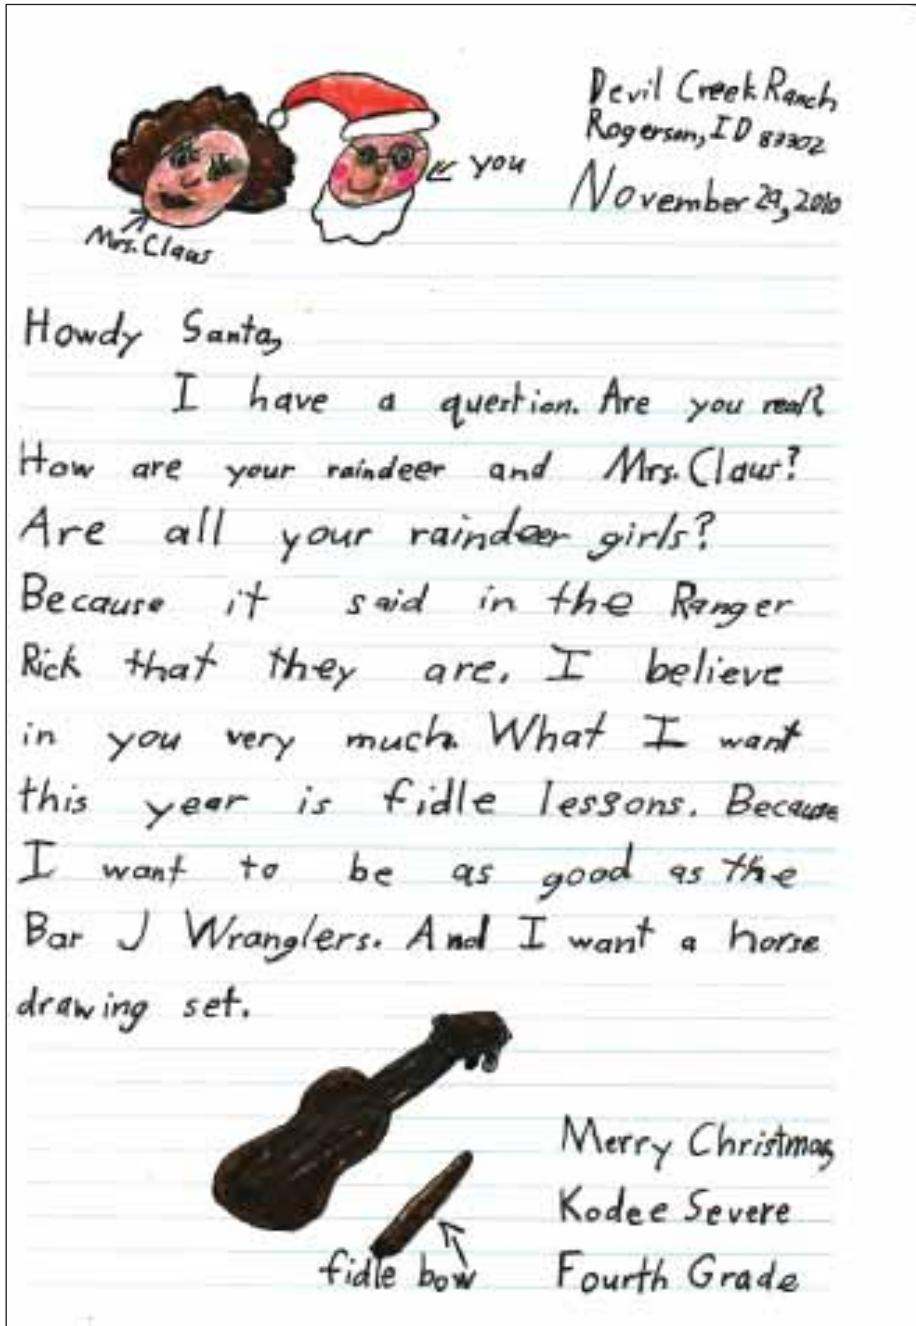 Devil Creek Ranch
Rogerson, ID 83302
November 29, 2010
you
Mrs. Claus
Howdy Santa,
I have a question. Are you real?
How are your raindeer and Mrs. Claus?
Are all your raindeer girls?
Because it said in the Ranger
Rick that they are. I believe
in you very much. What I want
this year is fidle lessons. Because
I want to be as good as the
Bar J Wranglers. And I want a horse
drawing set.
Merry Christmas,
Kodee Severe
fidle bow
Fourth Grade